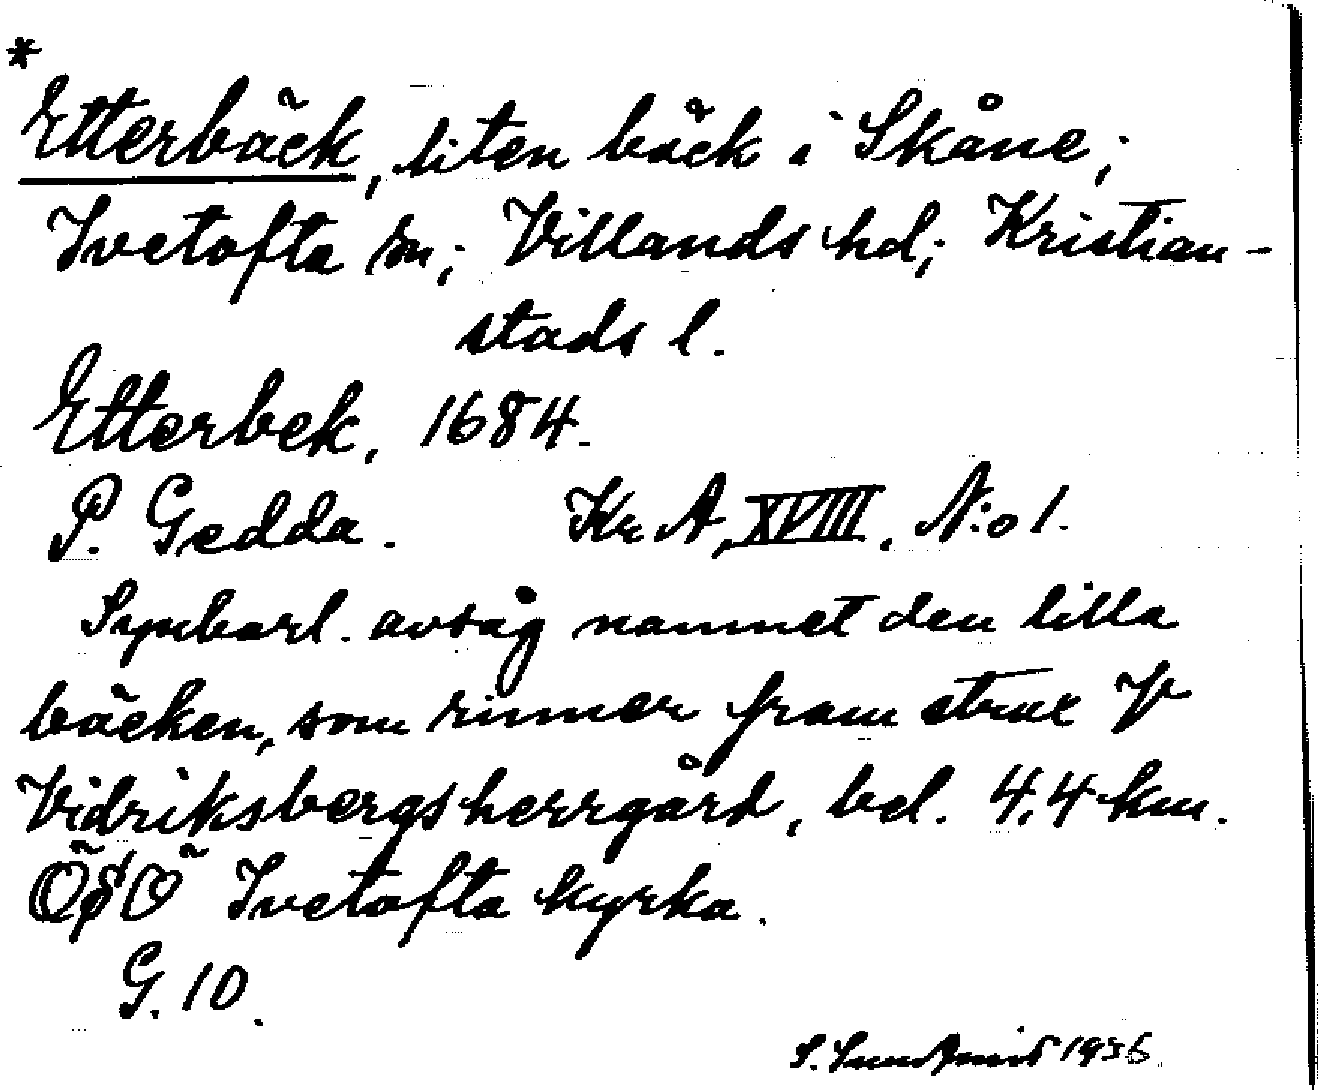 *
Etterbäck, liten bäck i Skåne;
Ivetofta sn; Villands hd; Kristian-
stads l.
Etterbek, 1684.
P. Gedda. Kr. A, XVIII, N:o 1.
Synbarl. avsåg namnet den lilla
bäcken, som rinner fram strax V
Vidriksbergs herrgård, bel. 4,4 km.
ÖSÖ Ivetofta kyrka.
G. 10.
S. 1956